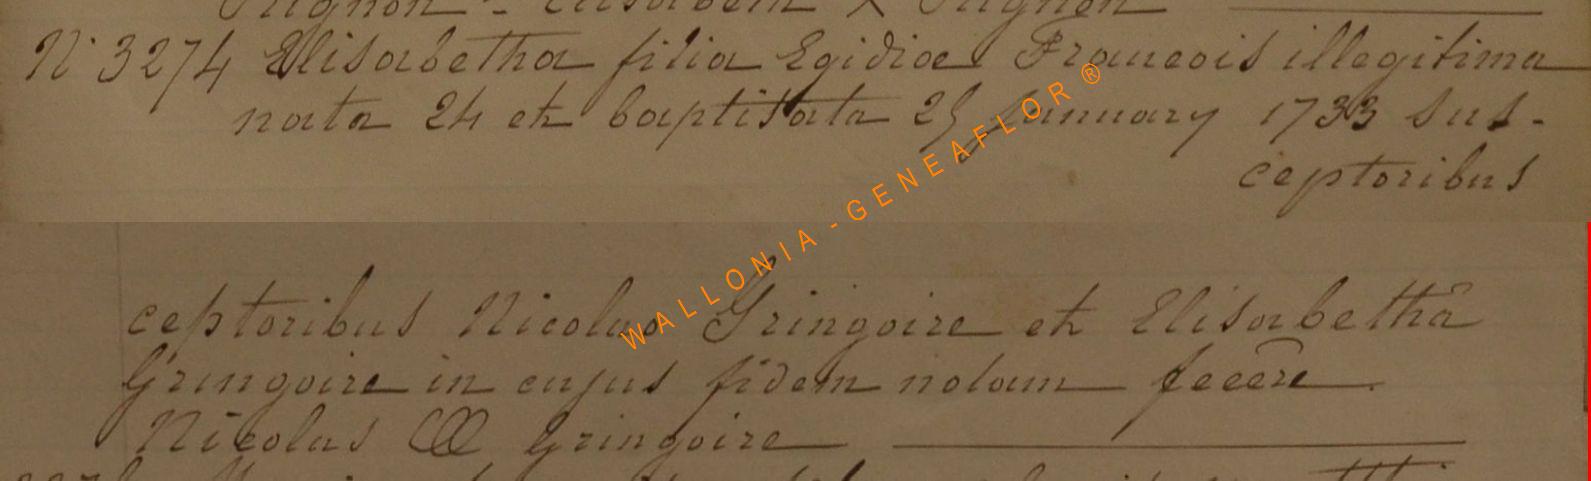 N° 3274 Elisabetha filia Egidiae Francois illegitima
nata 24 et baptisata 25 January 1733 sus-
ceptoribus
ceptoribus Nicolao Gringoire et Elisabethâ
Gringoire in cujus fidem notam fecere.
Nicolas Gringoire
WALLONIA-GENEAFLOR®